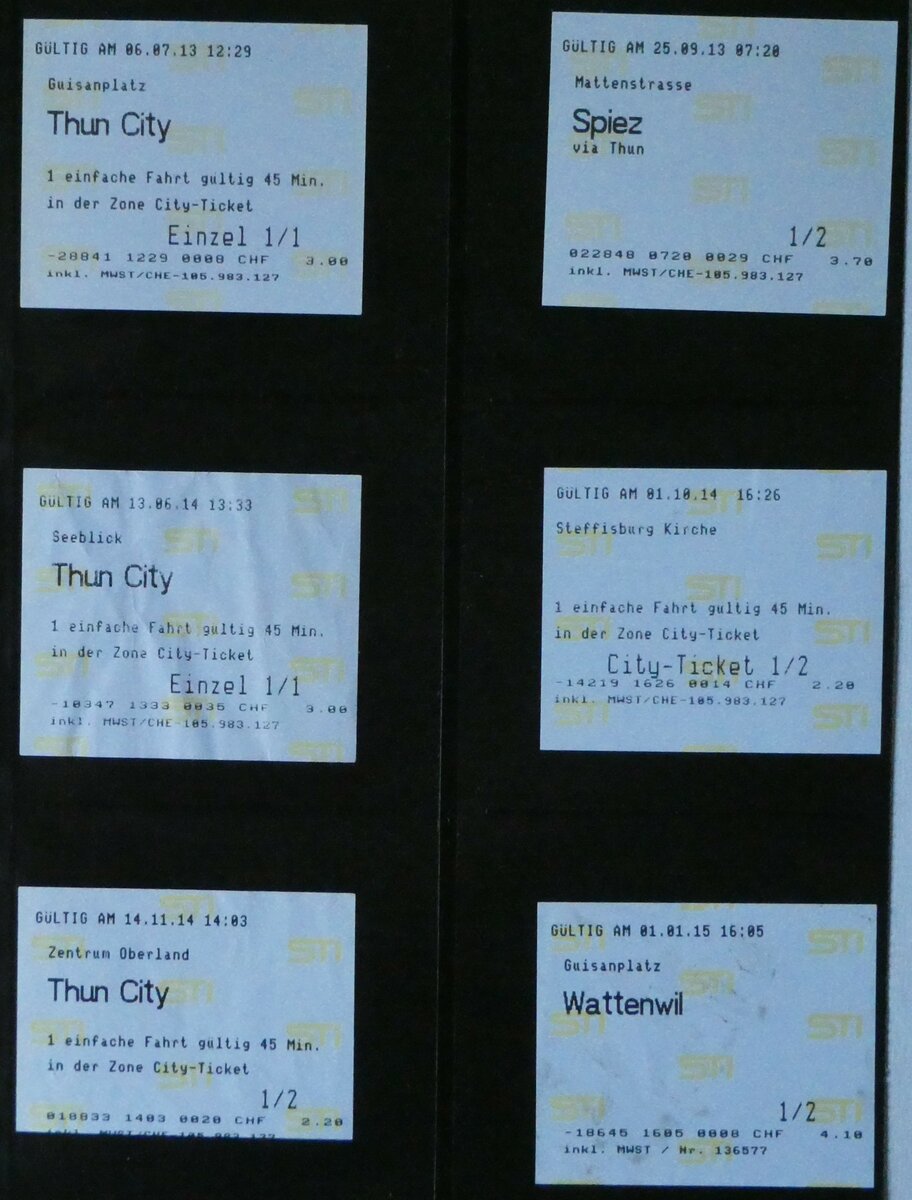 GÜLTIG AM 06.07.13 12:29
Guisanplatz
Thun City
1 einfache Fahrt gültig 45 Min.
in der Zone City-Ticket
Einzel 1/1
-28841 1229 0008 CHF 3.00
inkl. MWST/CHE-105.983.127
GÜLTIG AM 25.09.13 07:20
Mattenstrasse
Spiez
via Thun
1/2
022848 0720 0029 CHF 3.70
inkl. MWST/CHE-105.983.127
GÜLTIG AM 13.06.14 13:33
Seeblick
Thun City
1 einfache Fahrt gültig 45 Min.
in der Zone City-Ticket
Einzel 1/1
-10347 1333 0035 CHF 3.00
inkl. MWST/CHE-105.983.127
GÜLTIG AM 01.10.14 16:26
Steffisburg Kirche
1 einfache Fahrt gültig 45 Min.
in der Zone City-Ticket
City-Ticket 1/2
-14219 1626 0014 CHF 2.20
inkl. MWST/CHE-105.983.127
GÜLTIG AM 14.11.14 14:03
Zentrum Oberland
Thun City
1 einfache Fahrt gültig 45 Min.
in der Zone City-Ticket
1/2
018833 1403 0020 CHF 2.20
inkl. MWST/CHE-105.983.127
GÜLTIG AM 01.01.15 16:05
Guisanplatz
Wattenwil
1/2
-18645 1605 0008 CHF 4.10
inkl. MWST / Nr. 136577
STI